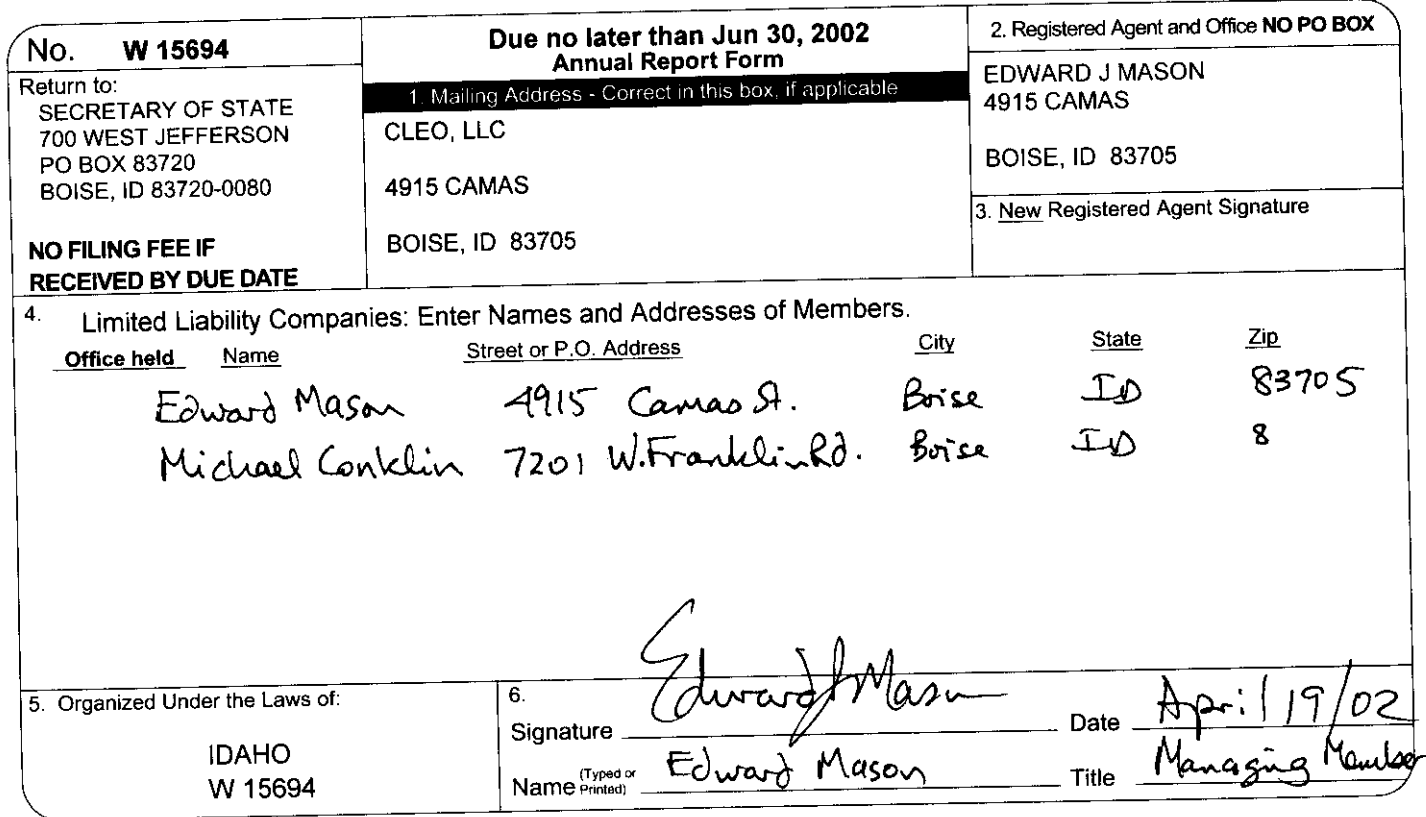 No. W 15694
Return to:
SECRETARY OF STATE
700 WEST JEFFERSON
PO BOX 83720
BOISE, ID 83720-0080
NO FILING FEE IF
RECEIVED BY DUE DATE
Due no later than Jun 30, 2002
Annual Report Form
1. Mailing Address - Correct in this box, if applicable
CLEO, LLC
4915 CAMAS
BOISE, ID 83705
2. Registered Agent and Office NO PO BOX
EDWARD J MASON
4915 CAMAS
BOISE, ID 83705
3. New Registered Agent Signature
4. Limited Liability Companies: Enter Names and Addresses of Members.
Office held Name Street or P.O. Address City State Zip
Edward Mason 4915 Camas St. Boise ID 83705
Michael Conklin 7201 W. Franklin Rd. Boise ID 8
5. Organized Under the Laws of:
IDAHO
W 15694
6.
Signature Edward J Mason Date April 19/02
Name (Typed or Printed) Edward Mason Title Managing Member